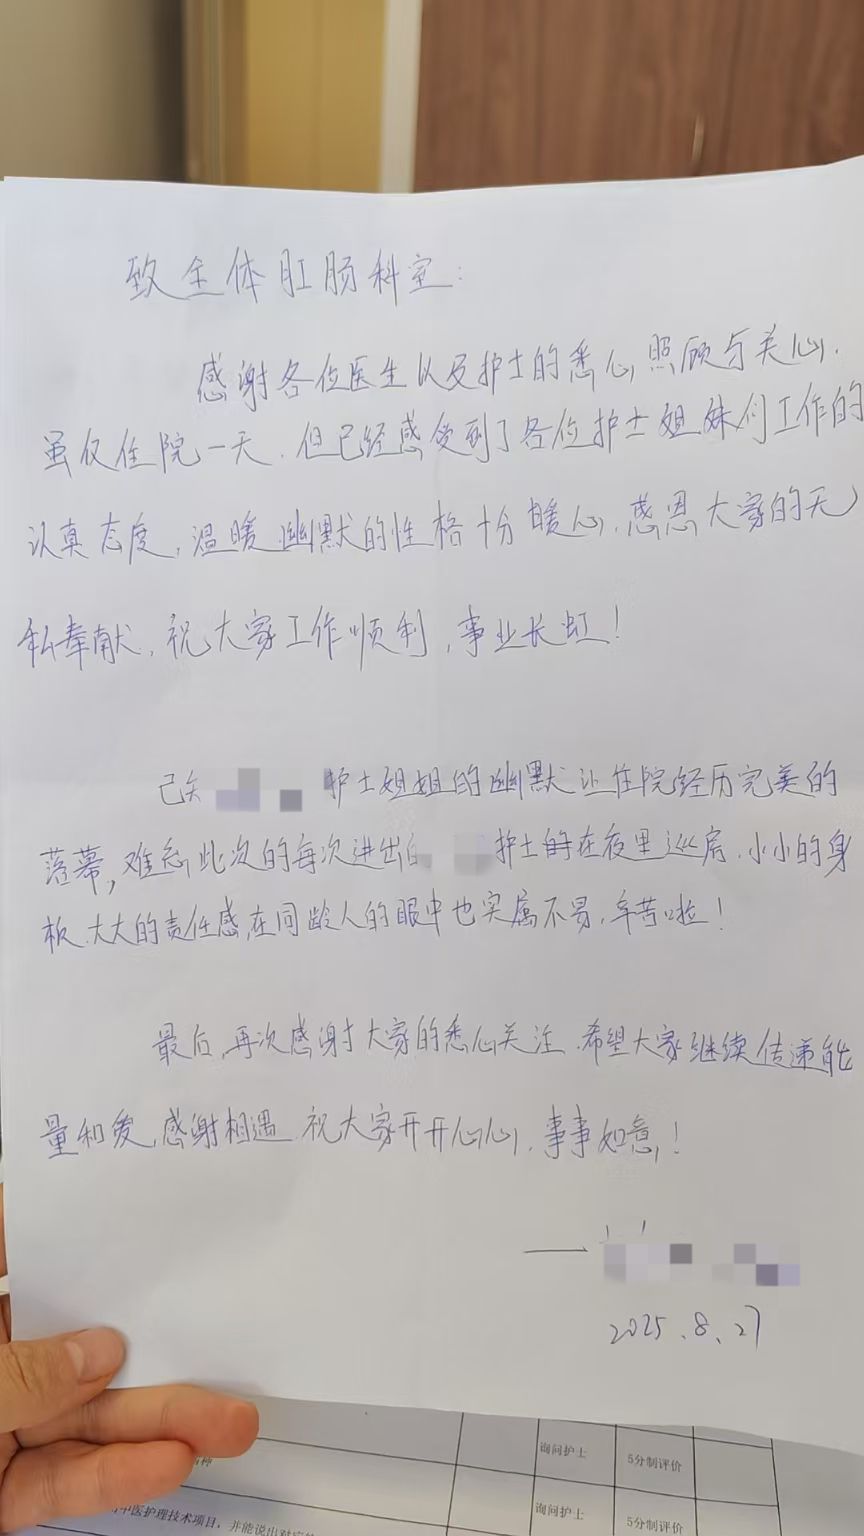 致全体肛肠科室:
感谢各位医生以及护士的悉心照顾与关心.
虽仅住院一天.但已经感受到了各位护士姐妹们工作的
认真态度,温暖幽默的性格十分暖心.感恩大家的无
私奉献,祝大家工作顺利,事业长虹!
护士姐姐的幽默让住院经历完美的
落幕,难忘此次的每次进出 护士 在夜里巡房.小小的身
板.大大的责任感,在同龄人的眼中也实属不易,辛苦啦!
最后,再次感谢大家的悉心关注.希望大家继续传递能
量和爱,感谢相遇.祝大家开开心心,事事如意!
——
2025.8.27
询问护士 5分制评价
中医护理技术项目,并能说出 询问护士 5分制评价